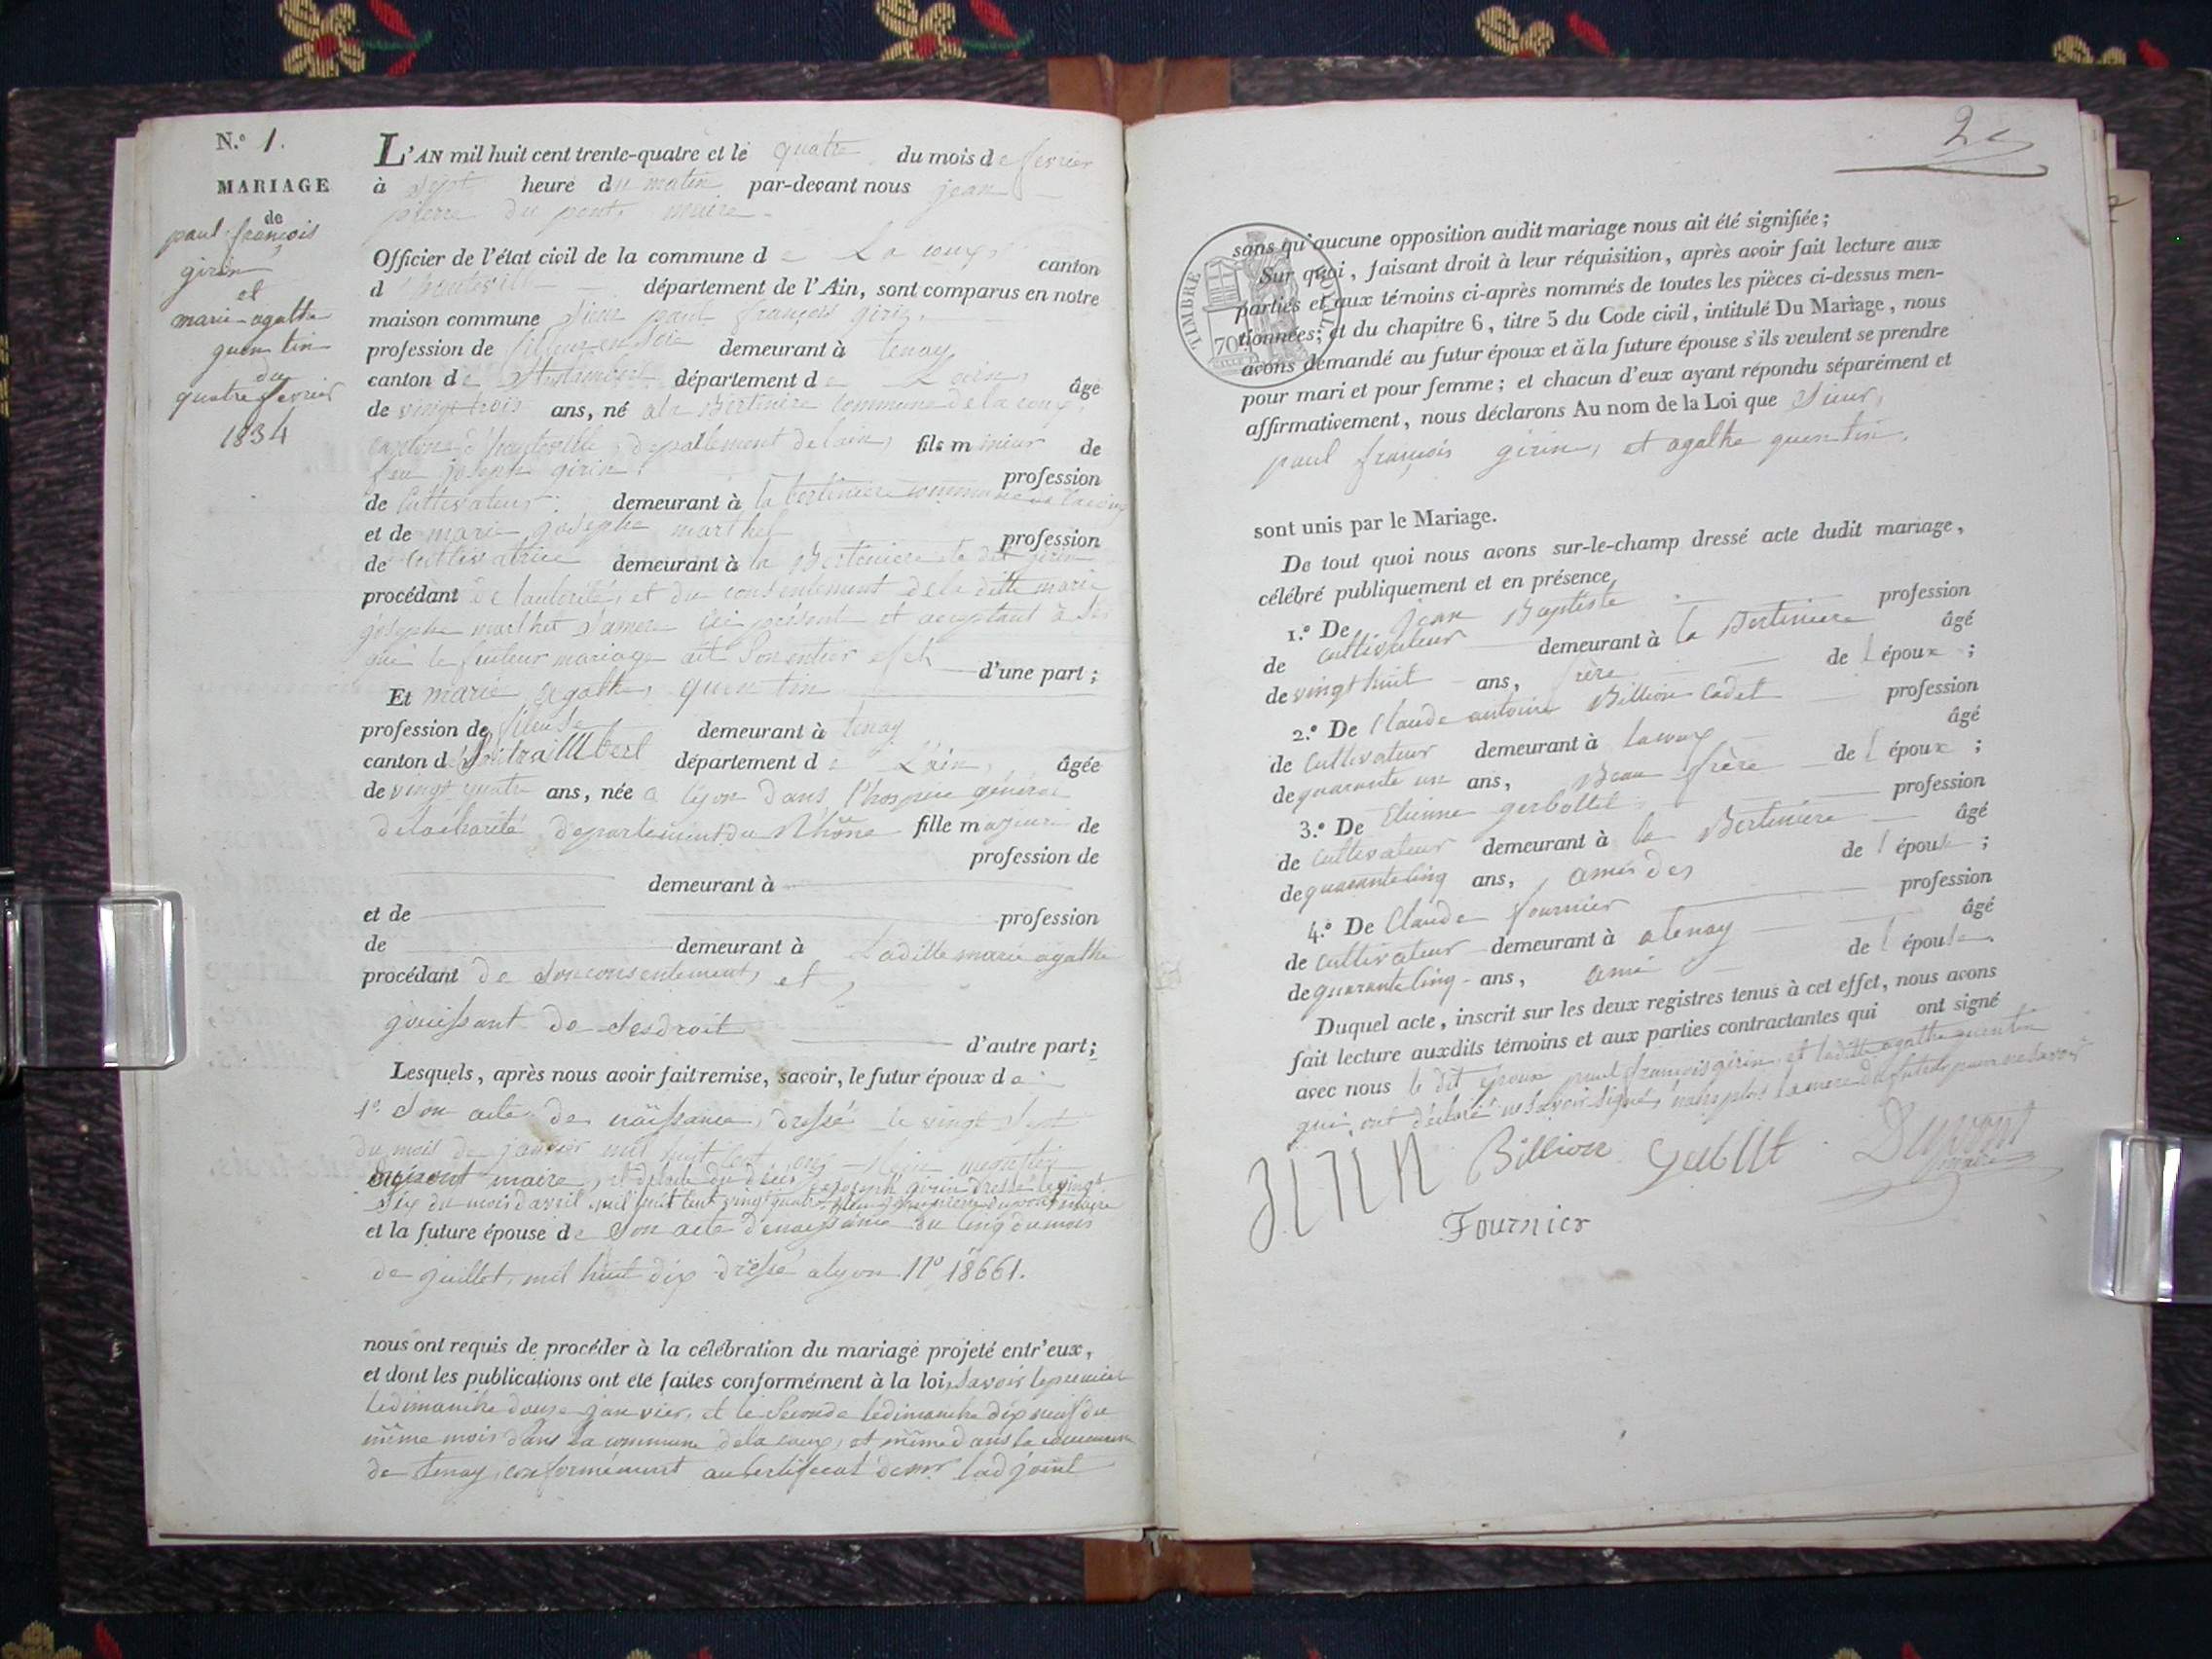 N.º 1.
MARIAGE
de
paul françois
girin
et
marie agathe
quentin
du
quatre fevrier
1834
L'AN mil huit cent trente-quatre et le quatre du mois de fevrier
à sept heure du matin par-devant nous jean
pierre du pont, maire
Officier de l'état civil de la commune de La coux,
canton
d'hauteville département de l'Ain, sont comparus en notre
maison commune Sieur paul françois girin,
profession de fileur en soie demeurant à tenay,
canton de St rambert département de L'ain, âgé
de vingt trois ans, né a la Bertinière commune de la coux,
canton d'hauteville, département de lain, fils mineur de
feu joseph girin profession
de Cultivateur demeurant à la bertiniere commune de lacoux
et de marie josephe marthet profession
de Cultivatrice demeurant à la Bertiniere le dit girin
procédant de l'autorité, et du consentement de la ditte marie
josephe marthet sa mere ici présent et acceptant à
que le futeur mariage ait son entier efet d'une part;
Et marie agathe, quentin
profession de fileuse demeurant à tenay
canton de St rambert département de L'ain, âgée
de vingt quatre ans, née a lyon dans l'hospice général
de la charité, département du Rhône fille majeure de
profession de
demeurant à
et de profession
de demeurant à Laditte marie agathe
procédant de son consentement, et
jouissant de ses droit
d'autre part;
Lesquels, après nous avoir fait remise, savoir, le futur époux de
1º Son acte de naissance, dressé le vingt sept
du mois de janvier mil huit cent onz
dupont maire, et de lacte du décès de joseph girin dressé le vingt
six du mois davril mil huit cent vingt quatre dupont maire
et la future épouse de Son acte de naissance du cinq du mois
de juillet, mil huit dix dressé a lyon nº 18661.
nous ont requis de procéder à la célébration du mariage projeté entr'eux,
et dont les publications ont été faites conformément à la loi, savoir le premier
le dimanche douze janvier, et le Seconde le dimanche dix neuf du
même mois dans la commune de la coux, et même dans la commune
de tenay, conformément au certificat de mr ladjoint
2
TIMBRE ROYAL
70
sans qu'aucune opposition audit mariage nous ait été signifiée;
Sur quoi, faisant droit à leur réquisition, après avoir fait lecture aux
parties et aux témoins ci-après nommés de toutes les pièces ci-dessus men-
tionnées; et du chapitre 6, titre 5 du Code civil, intitulé Du Mariage, nous
avons demandé au futur époux et à la future épouse s'ils veulent se prendre
pour mari et pour femme; et chacun d'eux ayant répondu séparément et
affirmativement, nous déclarons Au nom de la Loi que Sieur,
paul françois girin, et agathe quentin,
sont unis par le Mariage.
De tout quoi nous avons sur-le-champ dressé acte dudit mariage,
célébré publiquement et en présence,
1.º De jean Baptiste profession
de cultivateur demeurant à la Bertiniere âgé
de vingt huit ans, frère de l époux ;
2.º De Claude antoine Billion Cadet profession
de Cultivateur demeurant à lacoux âgé
de quarante un ans, Beau frère de l époux ;
3.º De Etienne gerbollet profession
de Cultivateur demeurant à la Bertiniere âgé
de quarante cinq ans, amis des de l épouse ;
4.º De Claude fournier profession
de cultivateur demeurant à a tenay âgé
de quarante cinq ans, ami de l épouse.
Duquel acte, inscrit sur les deux registres tenus à cet effet, nous avons
fait lecture auxdits témoins et aux parties contractantes qui ont signé
avec nous le dit époux paul françois girin, et laditte agathe quentin
qui, ont déclaré ne savoir signé, non plus la mere
girin Billion Dupont
maire
Fournier